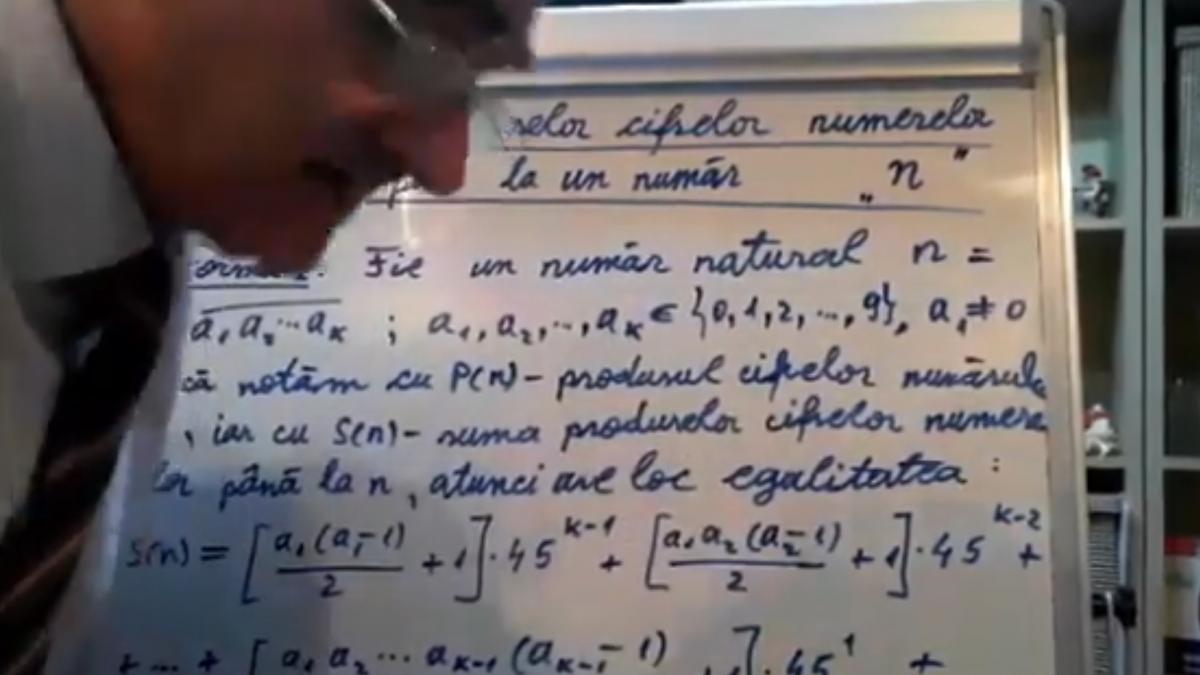 cifrelor numerelor
la un număr „n”
Fie un număr natural n =
a₁a₂...aₖ ; a₁,a₂,...,aₖ ∈ {0,1,2,...,9}, a₁≠0
că notăm cu P(n)- produsul cifrelor
, iar cu S(n)- suma produselor cifrelor numere
lor până la n, atunci are loc egalitatea :
S(n) = [a₁(a₁-1)/2 + 1]·45^(k-1) + [a₁a₂(a₂-1)/2 + 1]·45^(k-2) +
+ ... + [a₁a₂...aₖ₋₁(aₖ₋₁-1) 1]·45¹ +